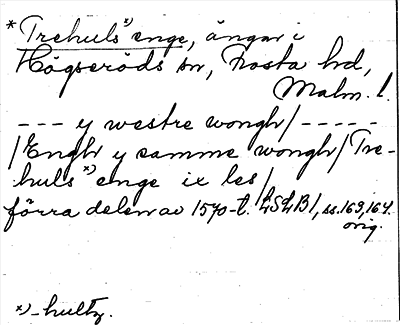 * Trehuls*) enge, ängar i
Högseröds sn, Frosta hd,
Malm. l.
--- y westre wongh/-----
/Engh y samme wongh/Tre-
huls*) enge ix les/
förra delen av 1570-t. LSLB1, ss. 163, 164.
orig.
*) -hultz.